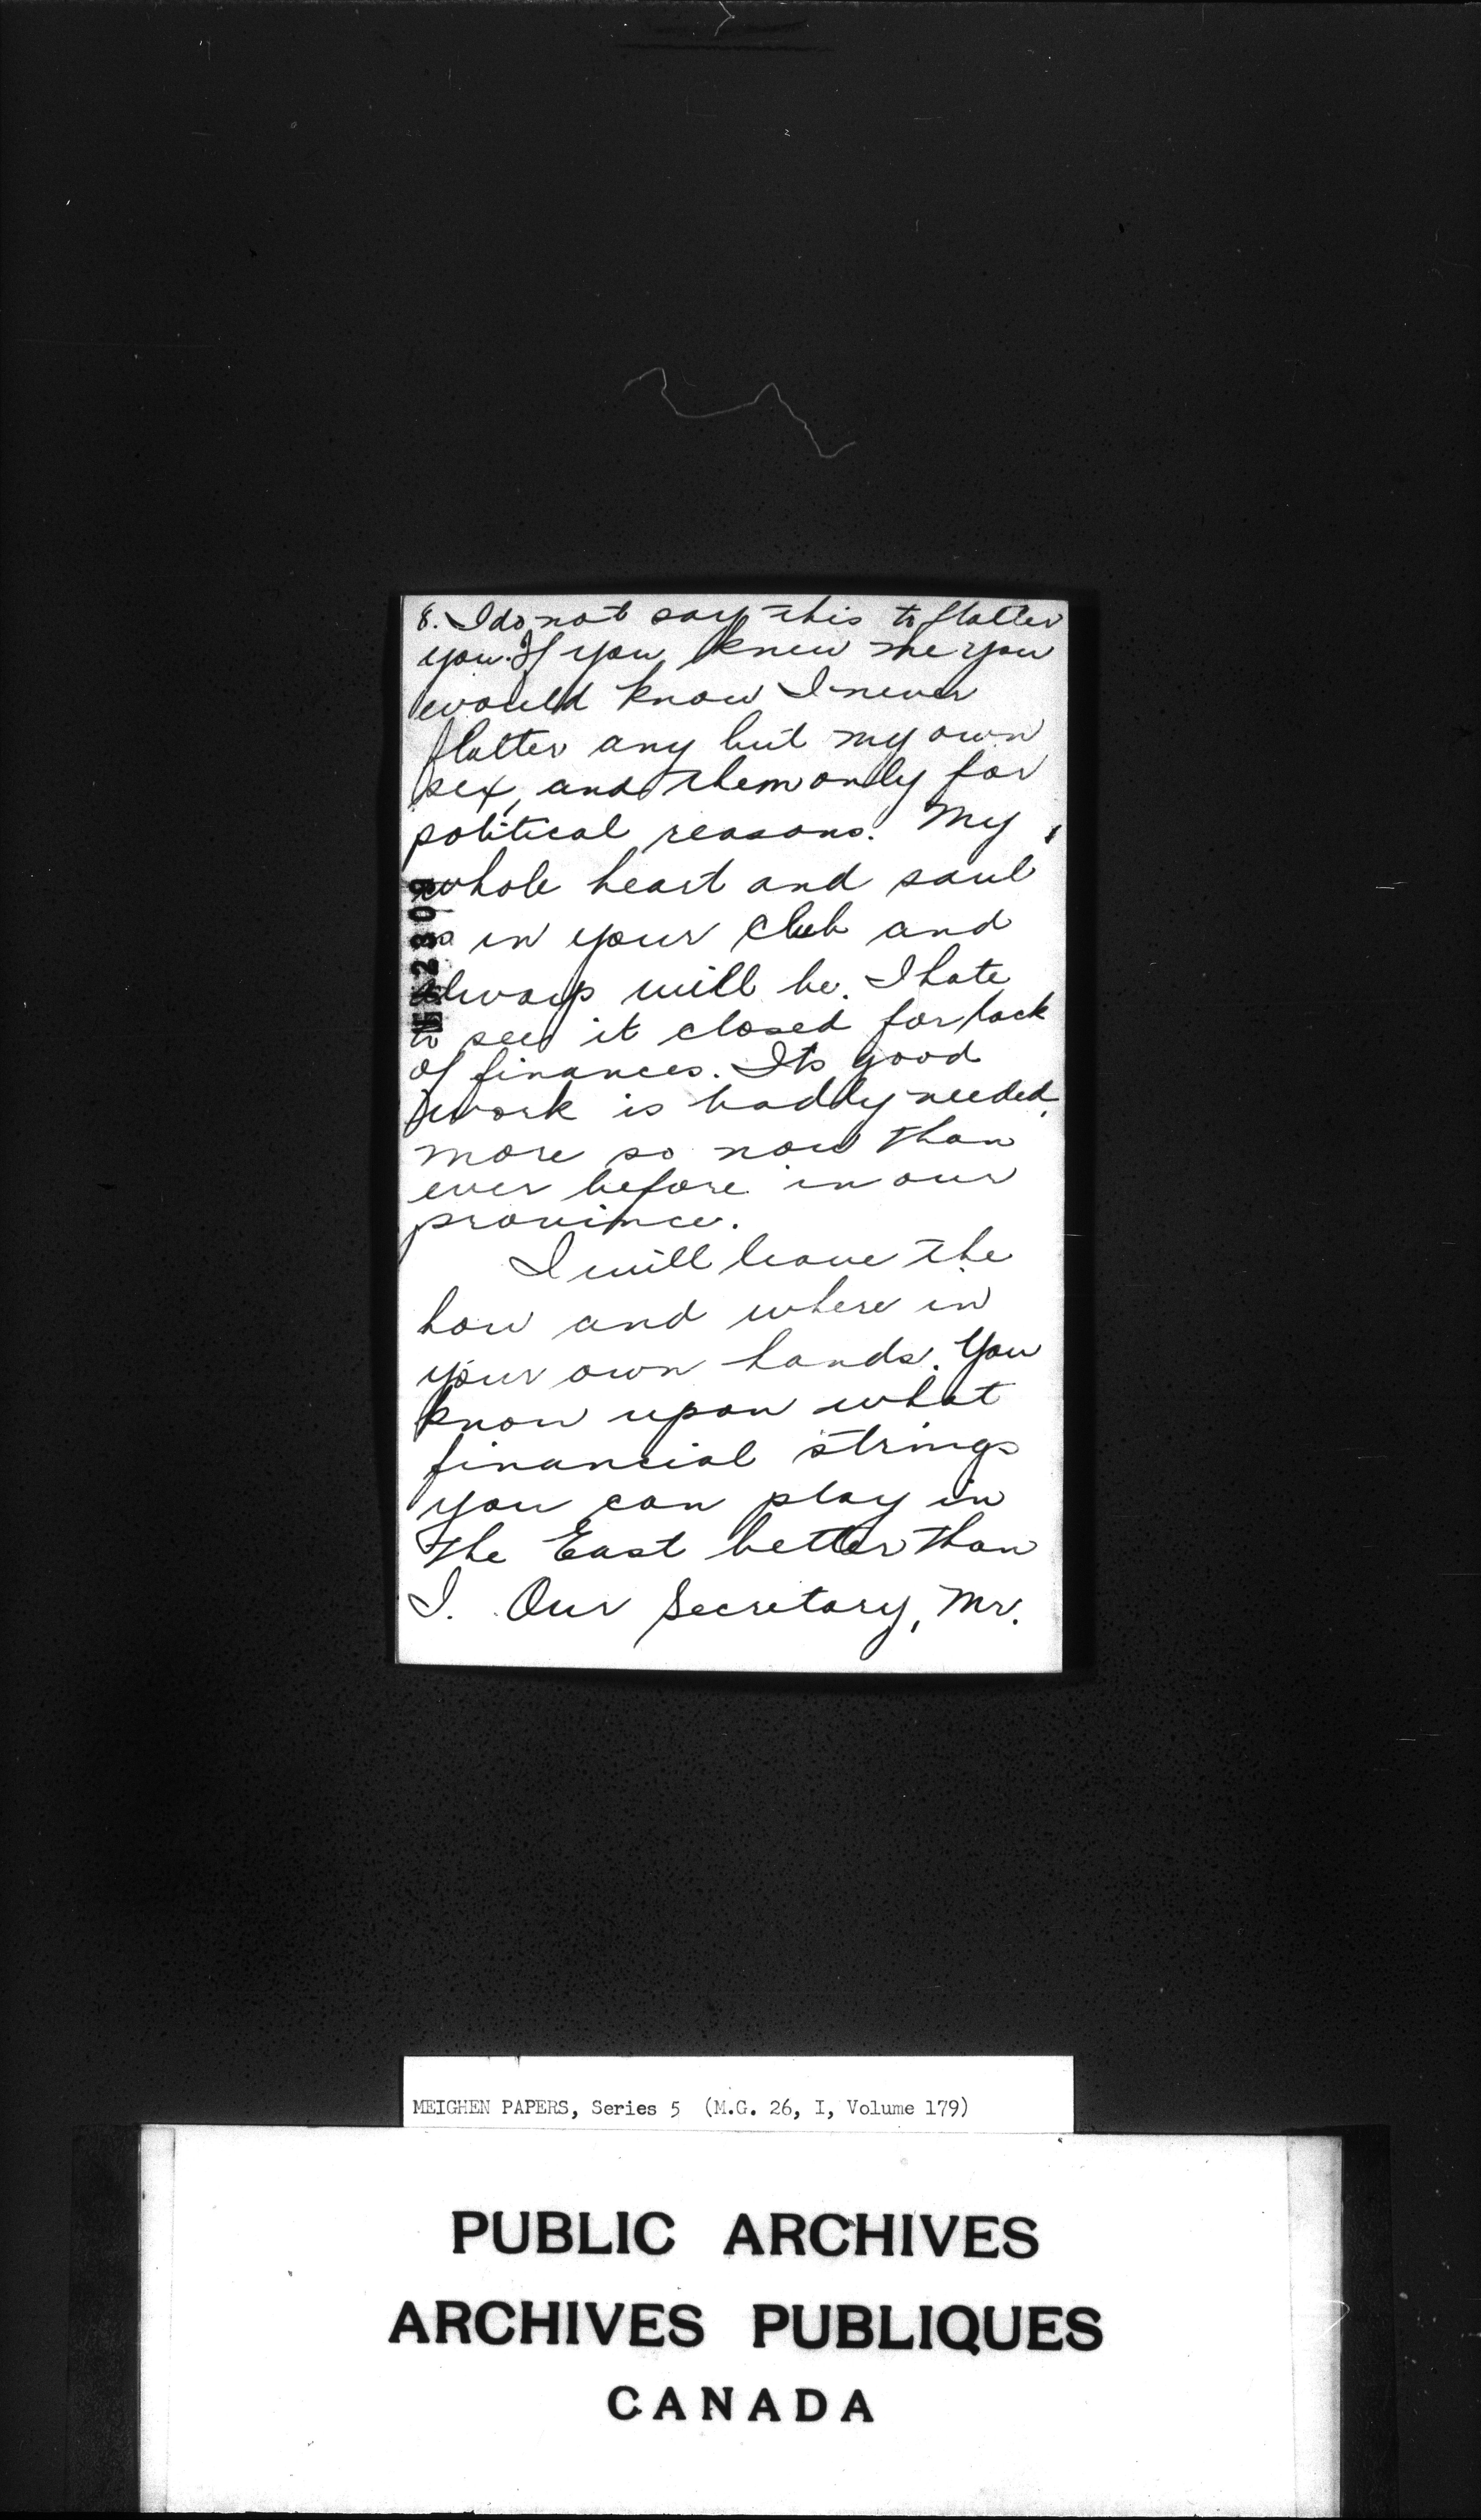 8. I do not say this to flatter
you. If you knew me you
would know I never
flatter any but my own
sex, and them only for
political reasons. My
whole heart and soul
is in your Club and
always will be. I hate
to see it closed for lack
of finances. Its good
work is baddly needed,
more so now than
ever before in our
province.
I will leave the
how and where in
your own hands. You
know upon what
financial strings
you can play in
the East better than
I. Our Secretary, Mr.
MEIGHEN PAPERS, Series 5 (M.G. 26, I, Volume 179)
PUBLIC ARCHIVES
ARCHIVES PUBLIQUES
CANADA